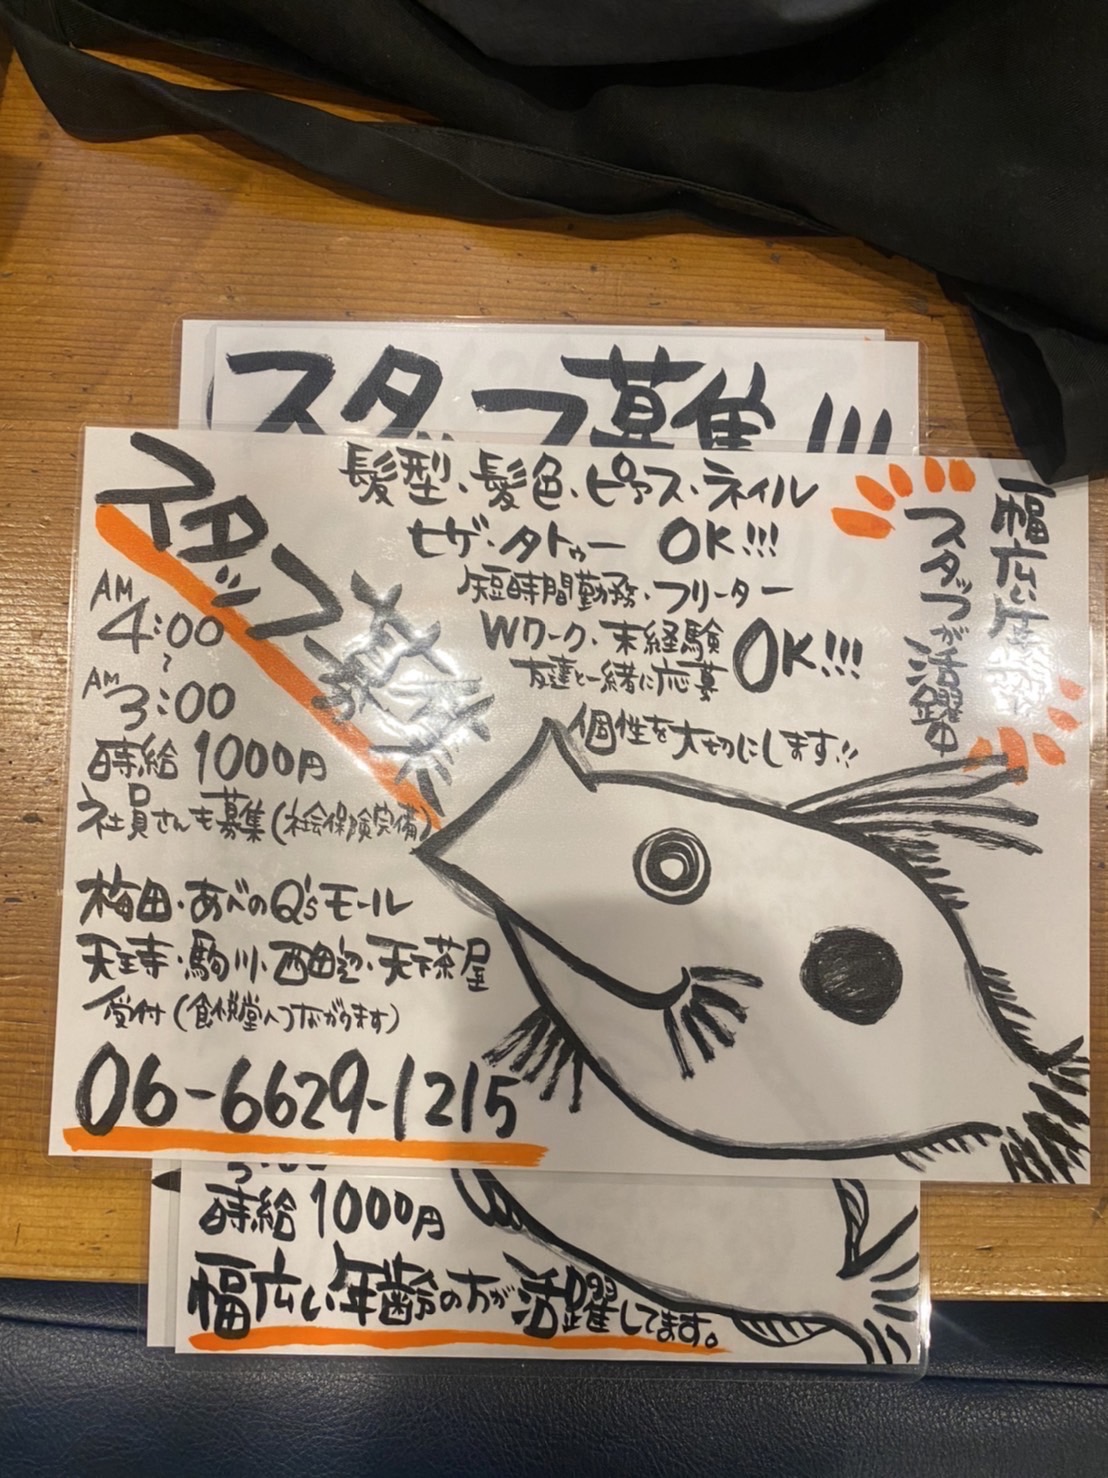 スタッフ募集!!!
スタッフ大募集
髪型・髪色・ピアス・ネイル
ヒゲ・タトゥー OK!!!
短時間勤務・フリーター
Wワーク・未経験
友達と一緒に応募
OK!!!
個性を大切にします!!
幅広い年齢
スタッフが活躍中
AM
4:00
～
AM
3:00
時給1000円
社員さんも募集(社会保険完備)
梅田・あべのQ'sモール
天王寺・駒川・西田辺・天下茶屋
受付(食悦堂へつながります)
06-6629-1215
時給1000円
幅広い年齢の方が活躍してます。